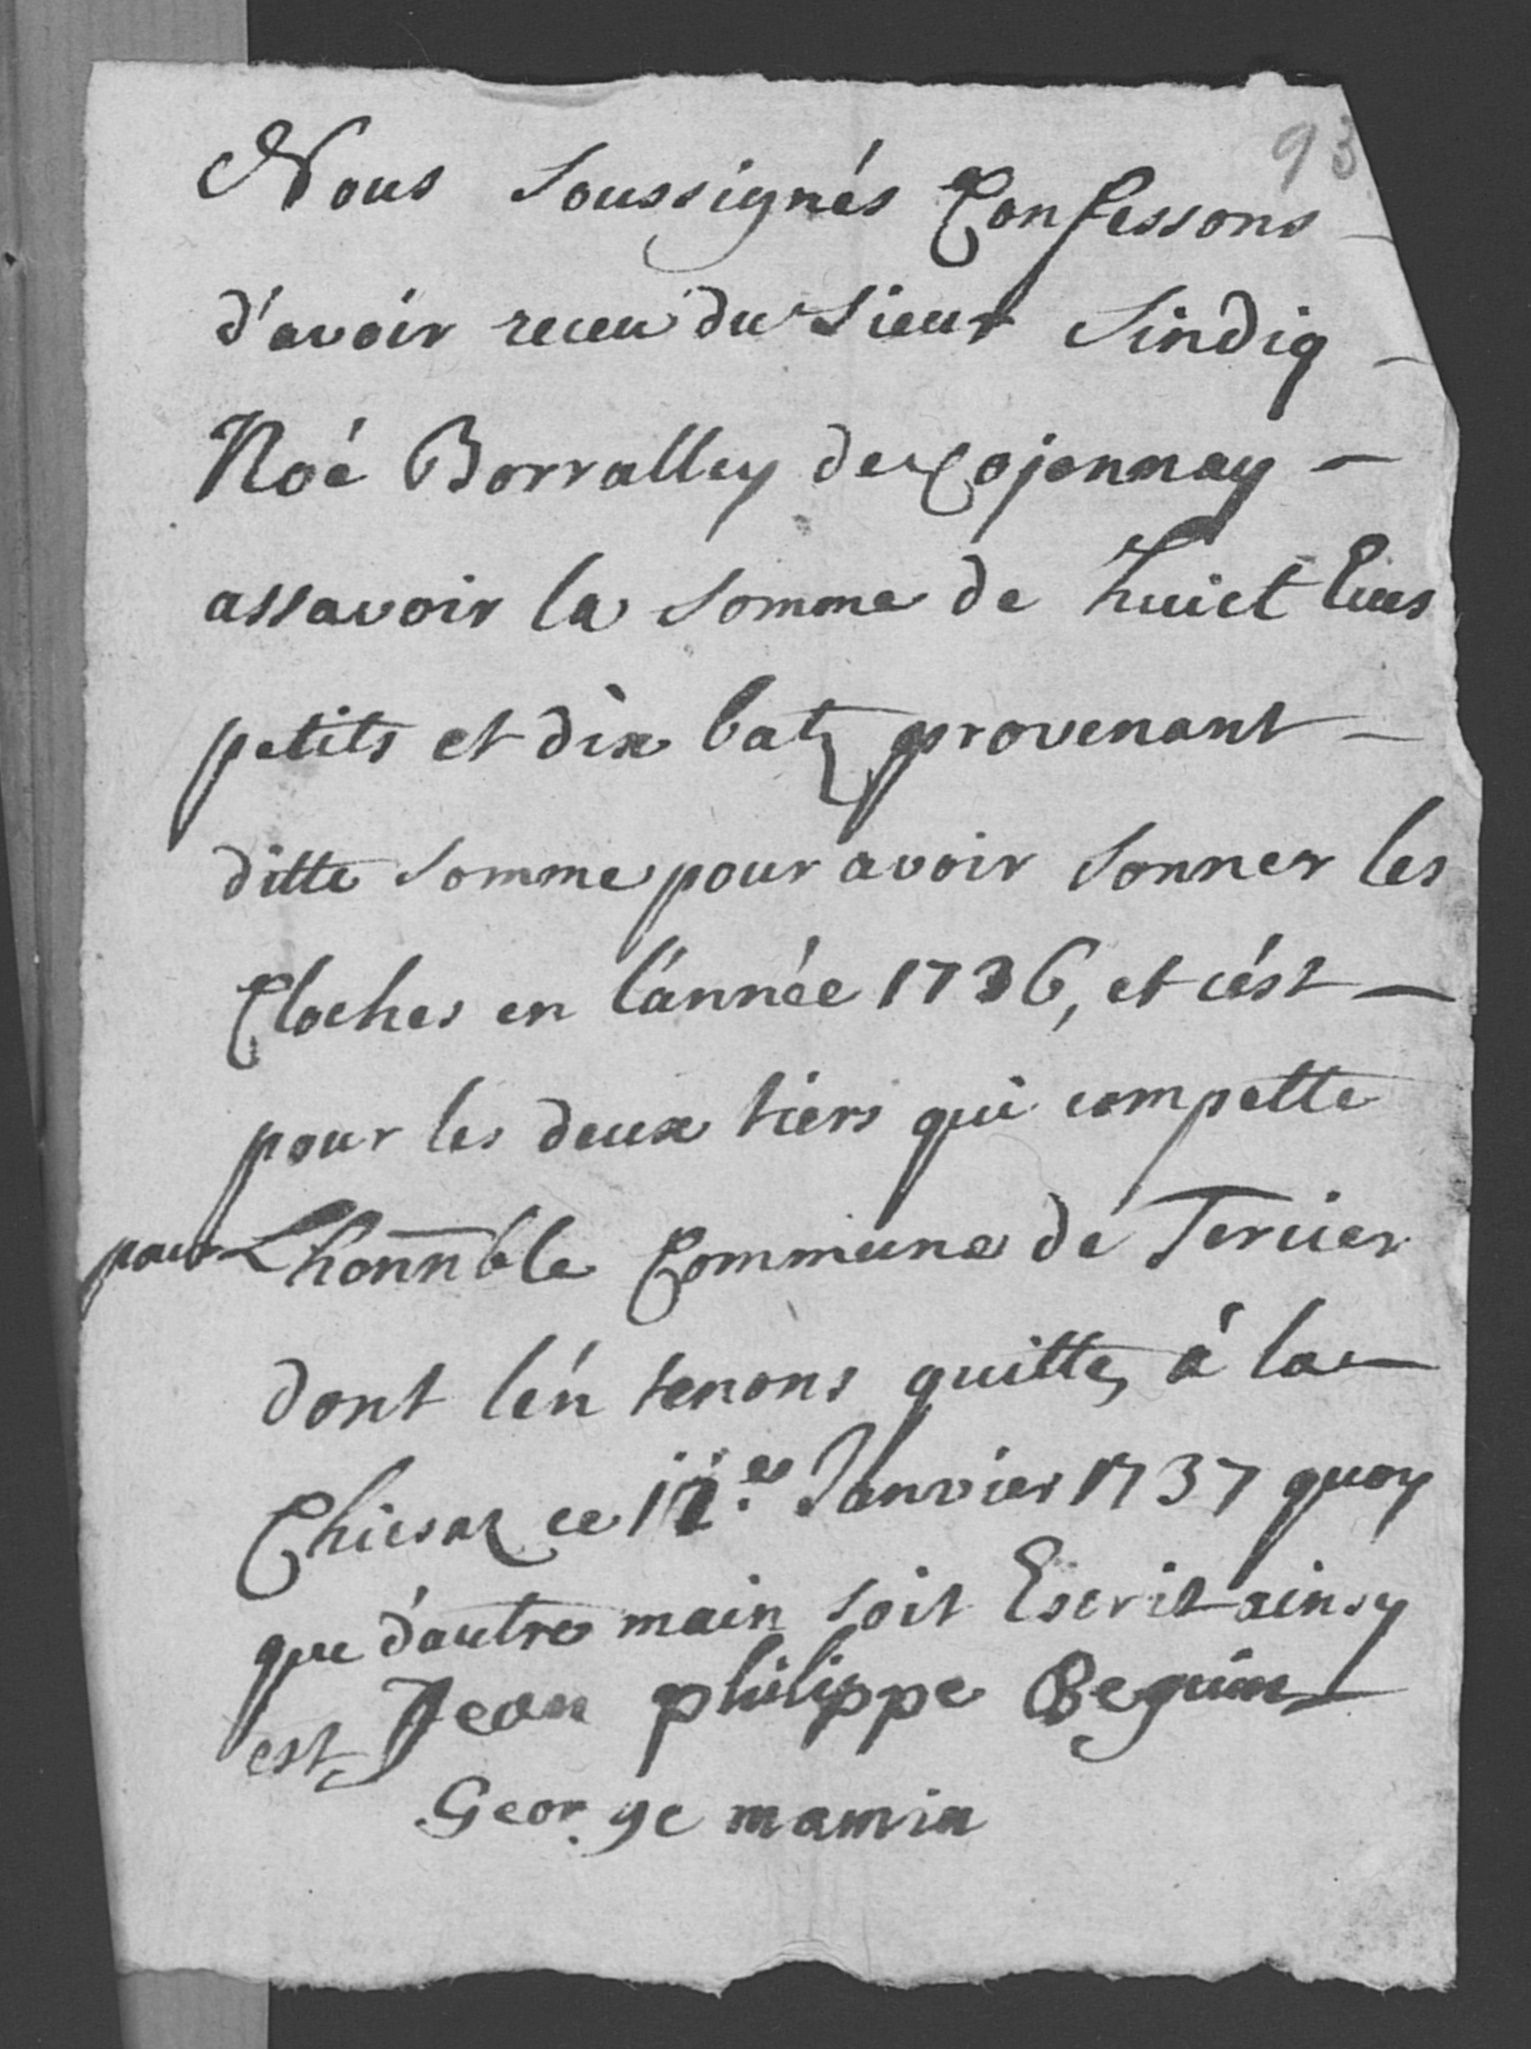 93
Nous Soussignés Confessons –
d'avoir receu du Sieur Sindiq –
Noé Borralley de Cojonnay –
assavoir la somme de huict Eues
petits et dix batz provenant –
ditte somme pour avoir sonner les
Cloches en l'année 1736, et c'ést –
pour les deux tiers qui compette
pour L'honnble Commune de Tercier
dont l'én tenons quitte, à la –
Chiesaz ce 12.e Janvier 1737 quoy
que d'autre main soit Escrit ainsy
est, Jean philippe Beguin
George mamin